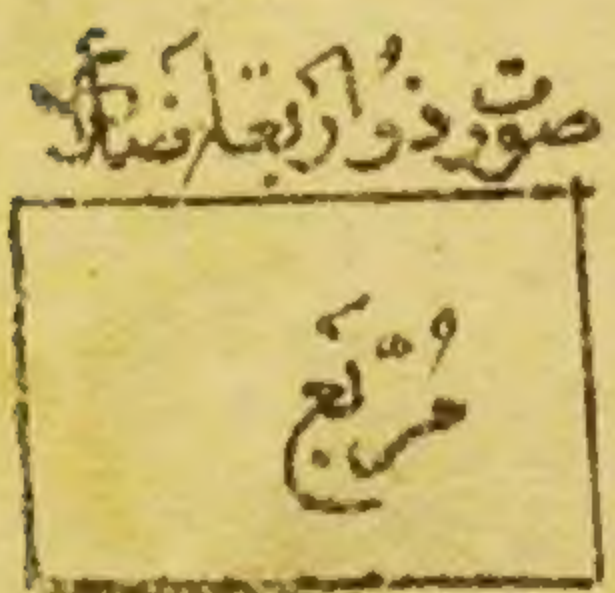 صورت ذو اربعة اضلاع
مُرَبَّع